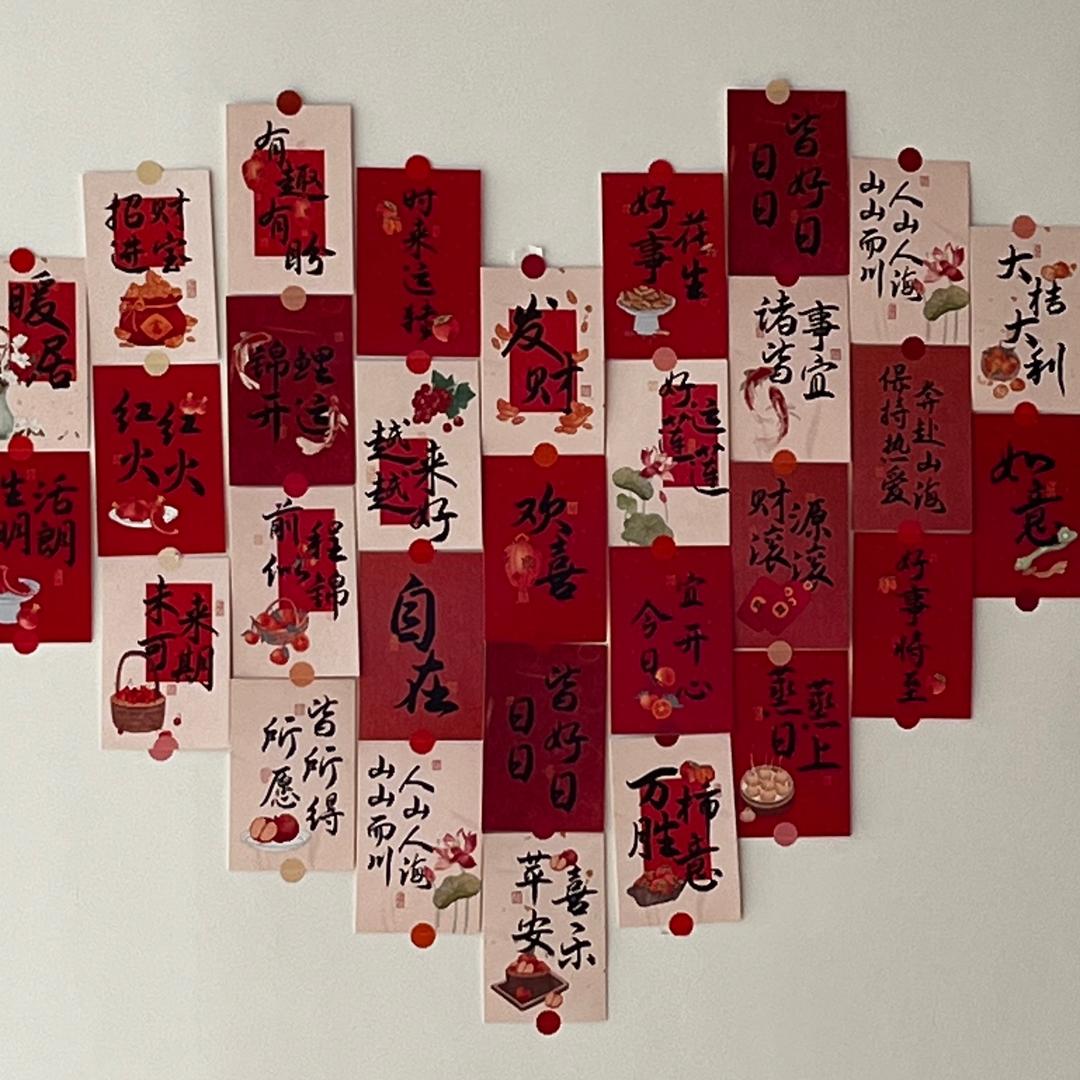 暖居
生活
明朗
招财
进宝
红红
火火
未来
可期
有趣
有盼
锦鲤
开运
前程
似锦
所愿
皆所得
时来运转
越来
越好
自在
人山人海
山山而川
发财
欢喜
日日
皆好日
苹安
喜乐
好事
花生
好运
莲莲
今日
宜开心
万柿
胜意
日日
皆好日
诸事
皆宜
财源
滚滚
蒸蒸
日上
人山人海
山山而川
保持热爱
奔赴山海
好事将至
大桔
大利
如意